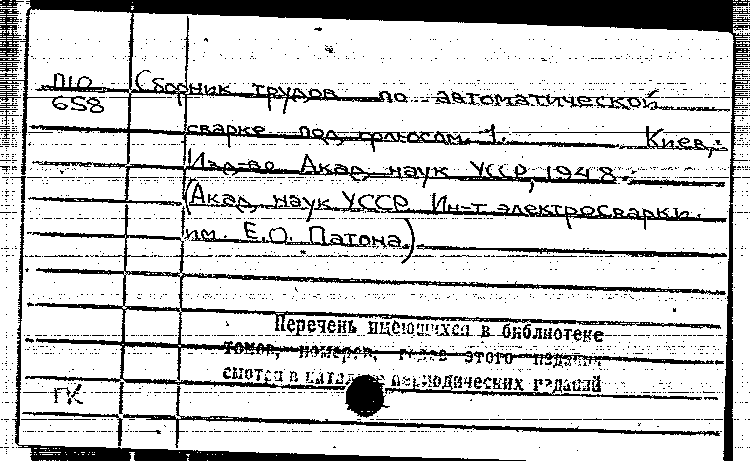 П10
658
Сборник трудов по автоматической
сварке под флюсом. 1. Киев,
Изд-во Акад. наук УССР, 1948.
(Акад. наук УССР. Ин-т электросварки
им. Е.О. Патона)
Перечень имеющихся в библиотеке
томов, номеров, годов этого издания
смотри в каталоге периодических изданий
ГК